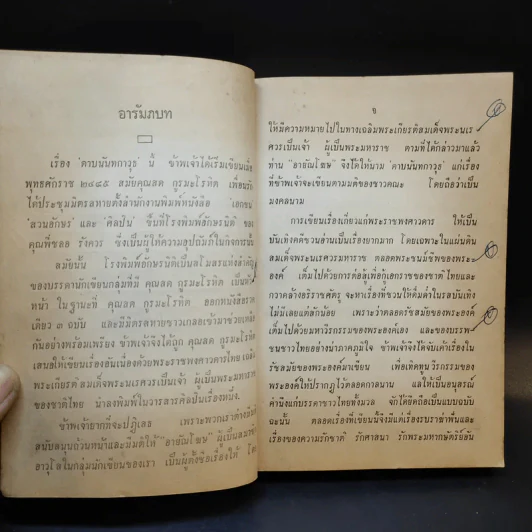 อารัมภบท
เรื่อง 'ดาบนันทกาวุธ' นี้ ข้าพเจ้าได้เริ่มเขียนเมื่อ
พุทธศักราช ๒๔๘๕ สมัยคุณสด กูรมะโรหิต เพื่อนรัก
ได้ประชุมมิตรสหายตั้งสำนักงานพิมพ์หนังสือ 'เอกชน'
'สวนอักษร' และ 'ศิลปิน' ขึ้นที่โรงพิมพ์อักษรนิติ ของ
คุณพี่ชลอ รังควร ซึ่งเป็นผู้ให้ความอุปถัมภ์ในกิจการนั้น
สมัยนั้น โรงพิมพ์อักษรนิติเป็นสโมสรแห่งสำคัญ
ของบรรดานักเขียนกลุ่มที่มี คุณสด กูรมะโรหิต เป็นหัว
หน้า ในฐานะที่ คุณสด กูรมะโรหิต ออกหนังสือราย
เดียว ๓ ฉบับ และมีมิตรสหายชาวเกลอเข้ามาช่วยเหลือ
กันอย่างพร้อมเพรียง ข้าพเจ้าจึงได้ถูก คุณสด กูรมะโรหิต
เสนอให้เขียนเรื่องอันเนื่องด้วยพระราชพงศาวดารไทย
พระเกียรติสมเด็จพระนเรศวรเป็นเจ้า ผู้เป็นพระมหาราช
ของชาติไทย นำลงพิมพ์ในวารสารศิลปินเรื่องหนึ่ง.
ข้าพเจ้ายากที่จะปฏิเสธ เพราะพวกเราต่าง
สนับสนุนถ้วนหน้าและมีมติให้ "อายัณโฆษ" ผู้เป็นสมาชิก
อาวุโสในกลุ่มนักเขียนของเรา เป็นผู้ตั้งชื่อเรื่องให้ โดย
ข
ให้มีความหมายไปในทางเฉลิมพระเกียรติสมเด็จพระนเร
ศวรเป็นเจ้า ผู้เป็นพระมหาราช ตามที่ได้กล่าวมาแล้ว
ท่าน "อายัณโฆษ" จึงได้ให้นาม 'ดาบนันทกาวุธ' แก่เรื่อง
ที่ข้าพเจ้าจะเขียนตามมติของชาวคณะ โดยถือว่าเป็น
มงคลนาม
การเขียนเรื่องเกี่ยวแก่พระราชพงศาวดาร ให้เป็น
บันเทิงคดีชวนอ่านเป็นเรื่องยากมาก โดยเฉพาะในแผ่นดิน
สมเด็จพระนเรศวรมหาราช ตลอดพระชนม์ชีพของพระ
องค์ เต็มไปด้วยการต่อสู้เพื่อกู้เอกราชของชาติไทยและ
กวาดล้างอริราชศัตรู จะหาเรื่องที่ชวนให้ดื่มด่ำในรสบันเทิง
ไม่มีเลยแต่สักน้อย เพราะว่าตลอดรัชสมัยของพระองค์
เต็มไปด้วยมหาวีรกรรมของพระองค์เอง และของบรรพ-
ชนชาวไทยอย่างน่าภาคภูมิใจ ข้าพเจ้าจึงได้จับเค้าเรื่องใน
รัชสมัยของพระองค์มาเขียน เพื่อเทิดทูนวีรกรรมของ
พระองค์ให้ปรากฏไว้ตลอดกาลนาน และให้เป็นอนุสรณ์
คำนึงแก่บรรดาชาวไทยทั้งมวล จักได้ยึดถือเป็นแบบฉบับ
ฉะนั้น ตลอดเรื่องที่เขียนนี้จึงมีแต่เรื่องรบราฆ่าฟันและ
เรื่องของความรักชาติ รักศาสนา รักพระมหากษัตริย์อัน